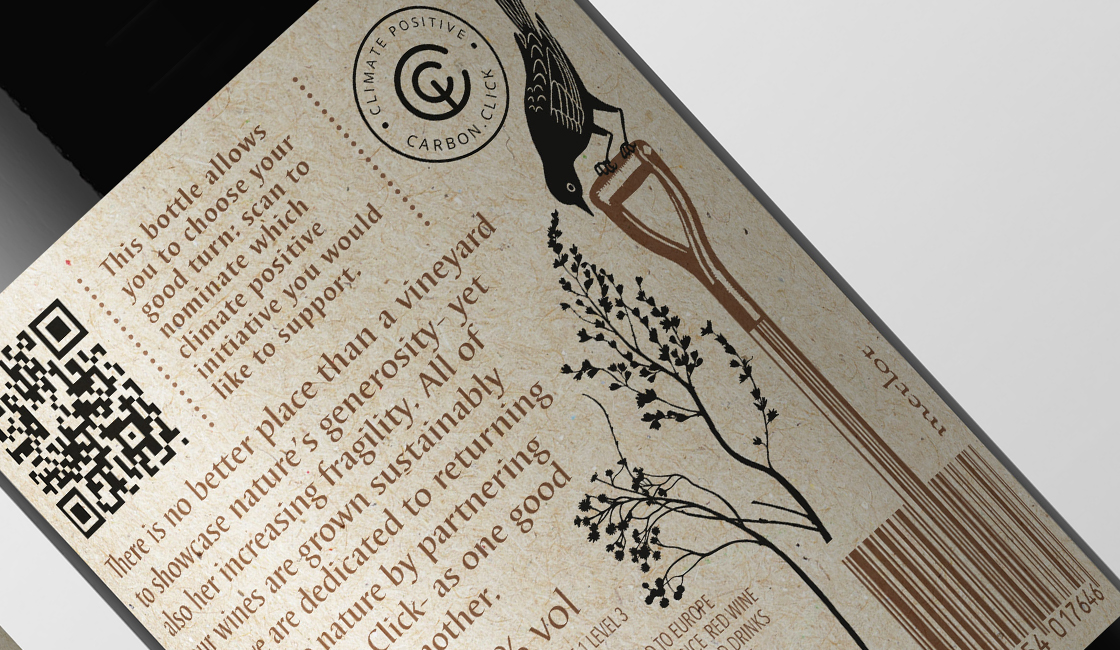 CLIMATE POSITIVE
CARBON.CLICK
This bottle allows
you to choose your
good turn: scan to
nominate which
climate positive
initiative you would
like to support.
There is no better place than a vineyard
to showcase nature's generosity- yet
also her increasing fragility. All of
wines are grown sustainably
are dedicated to returning
nature by partnering
Click- as one good
vol
LEVEL 3
TO EUROPE
RED WINE
DRINKS
merlot
4 017646